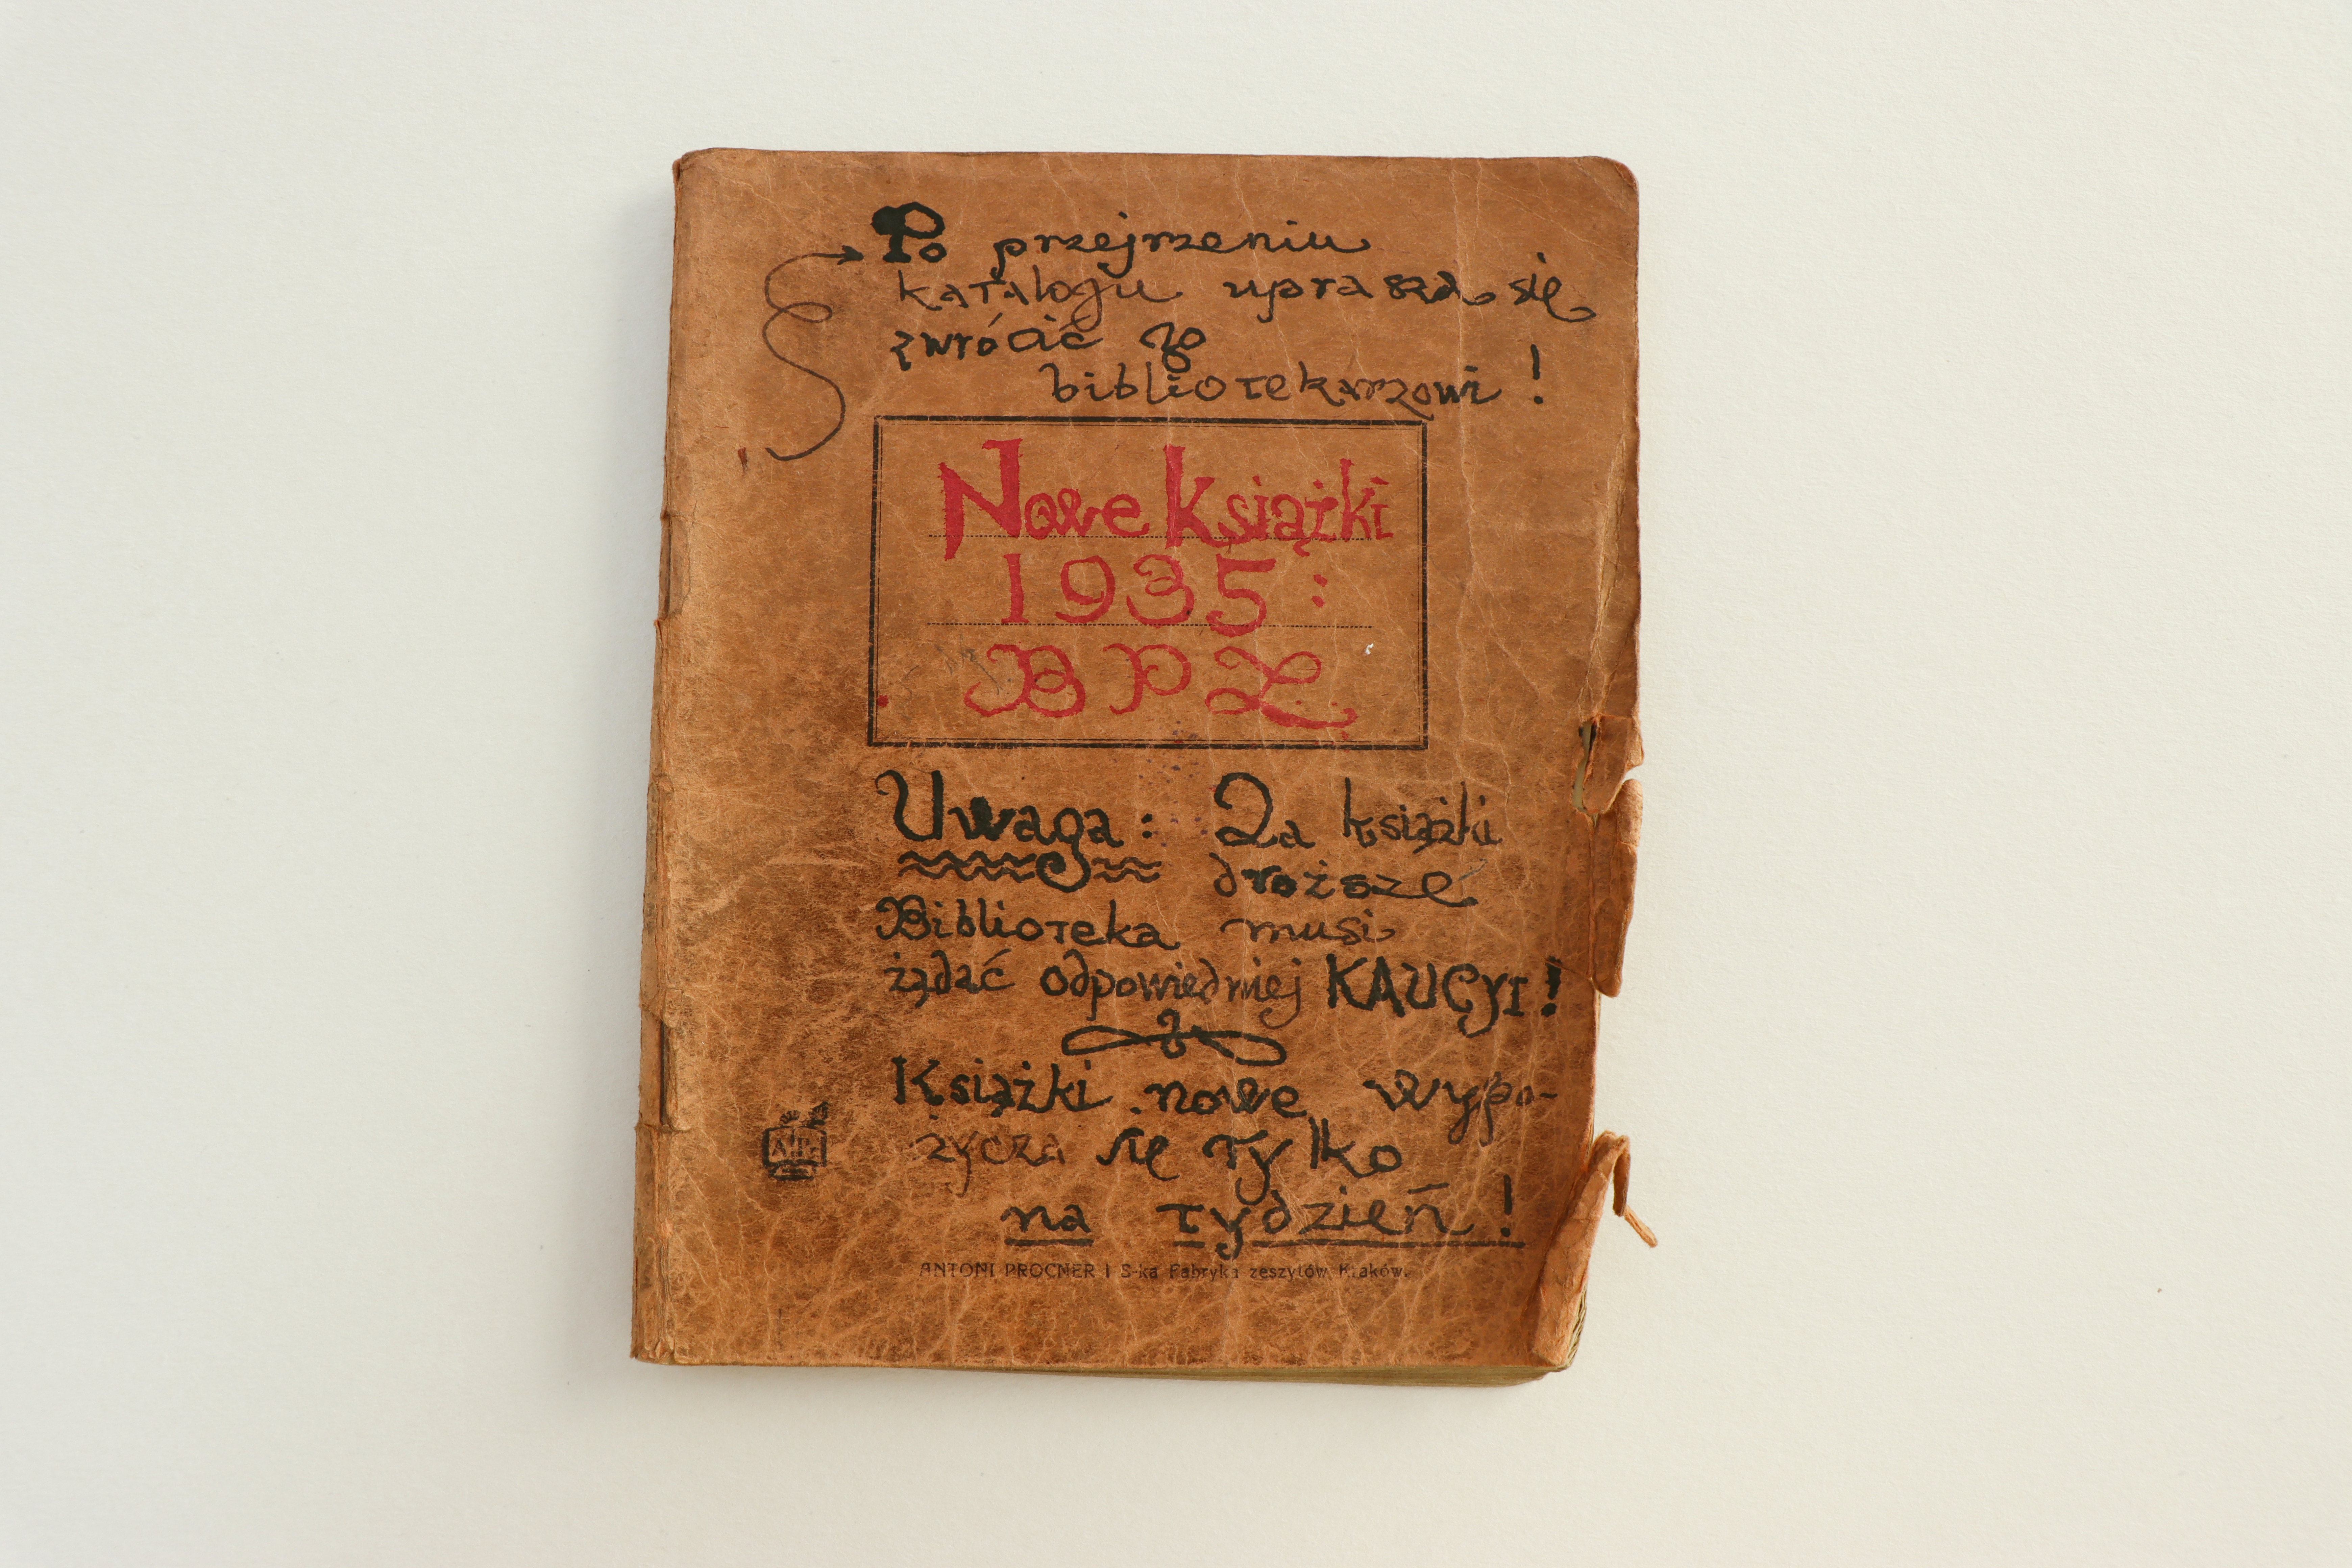 Po przejrzeniu
katalogu uprasza się
zwrócić go
bibliotekarzowi!
Nowe książki
1935:
B P Z.
Uwaga: Za książki
droższe
Biblioteka musi
żądać odpowiedniej KAUCYI!
Książki nowe wypo-
życza się tylko
na tydzień!
ANTONI PROCNER I S-ka Fabryka zeszytów, Kraków.